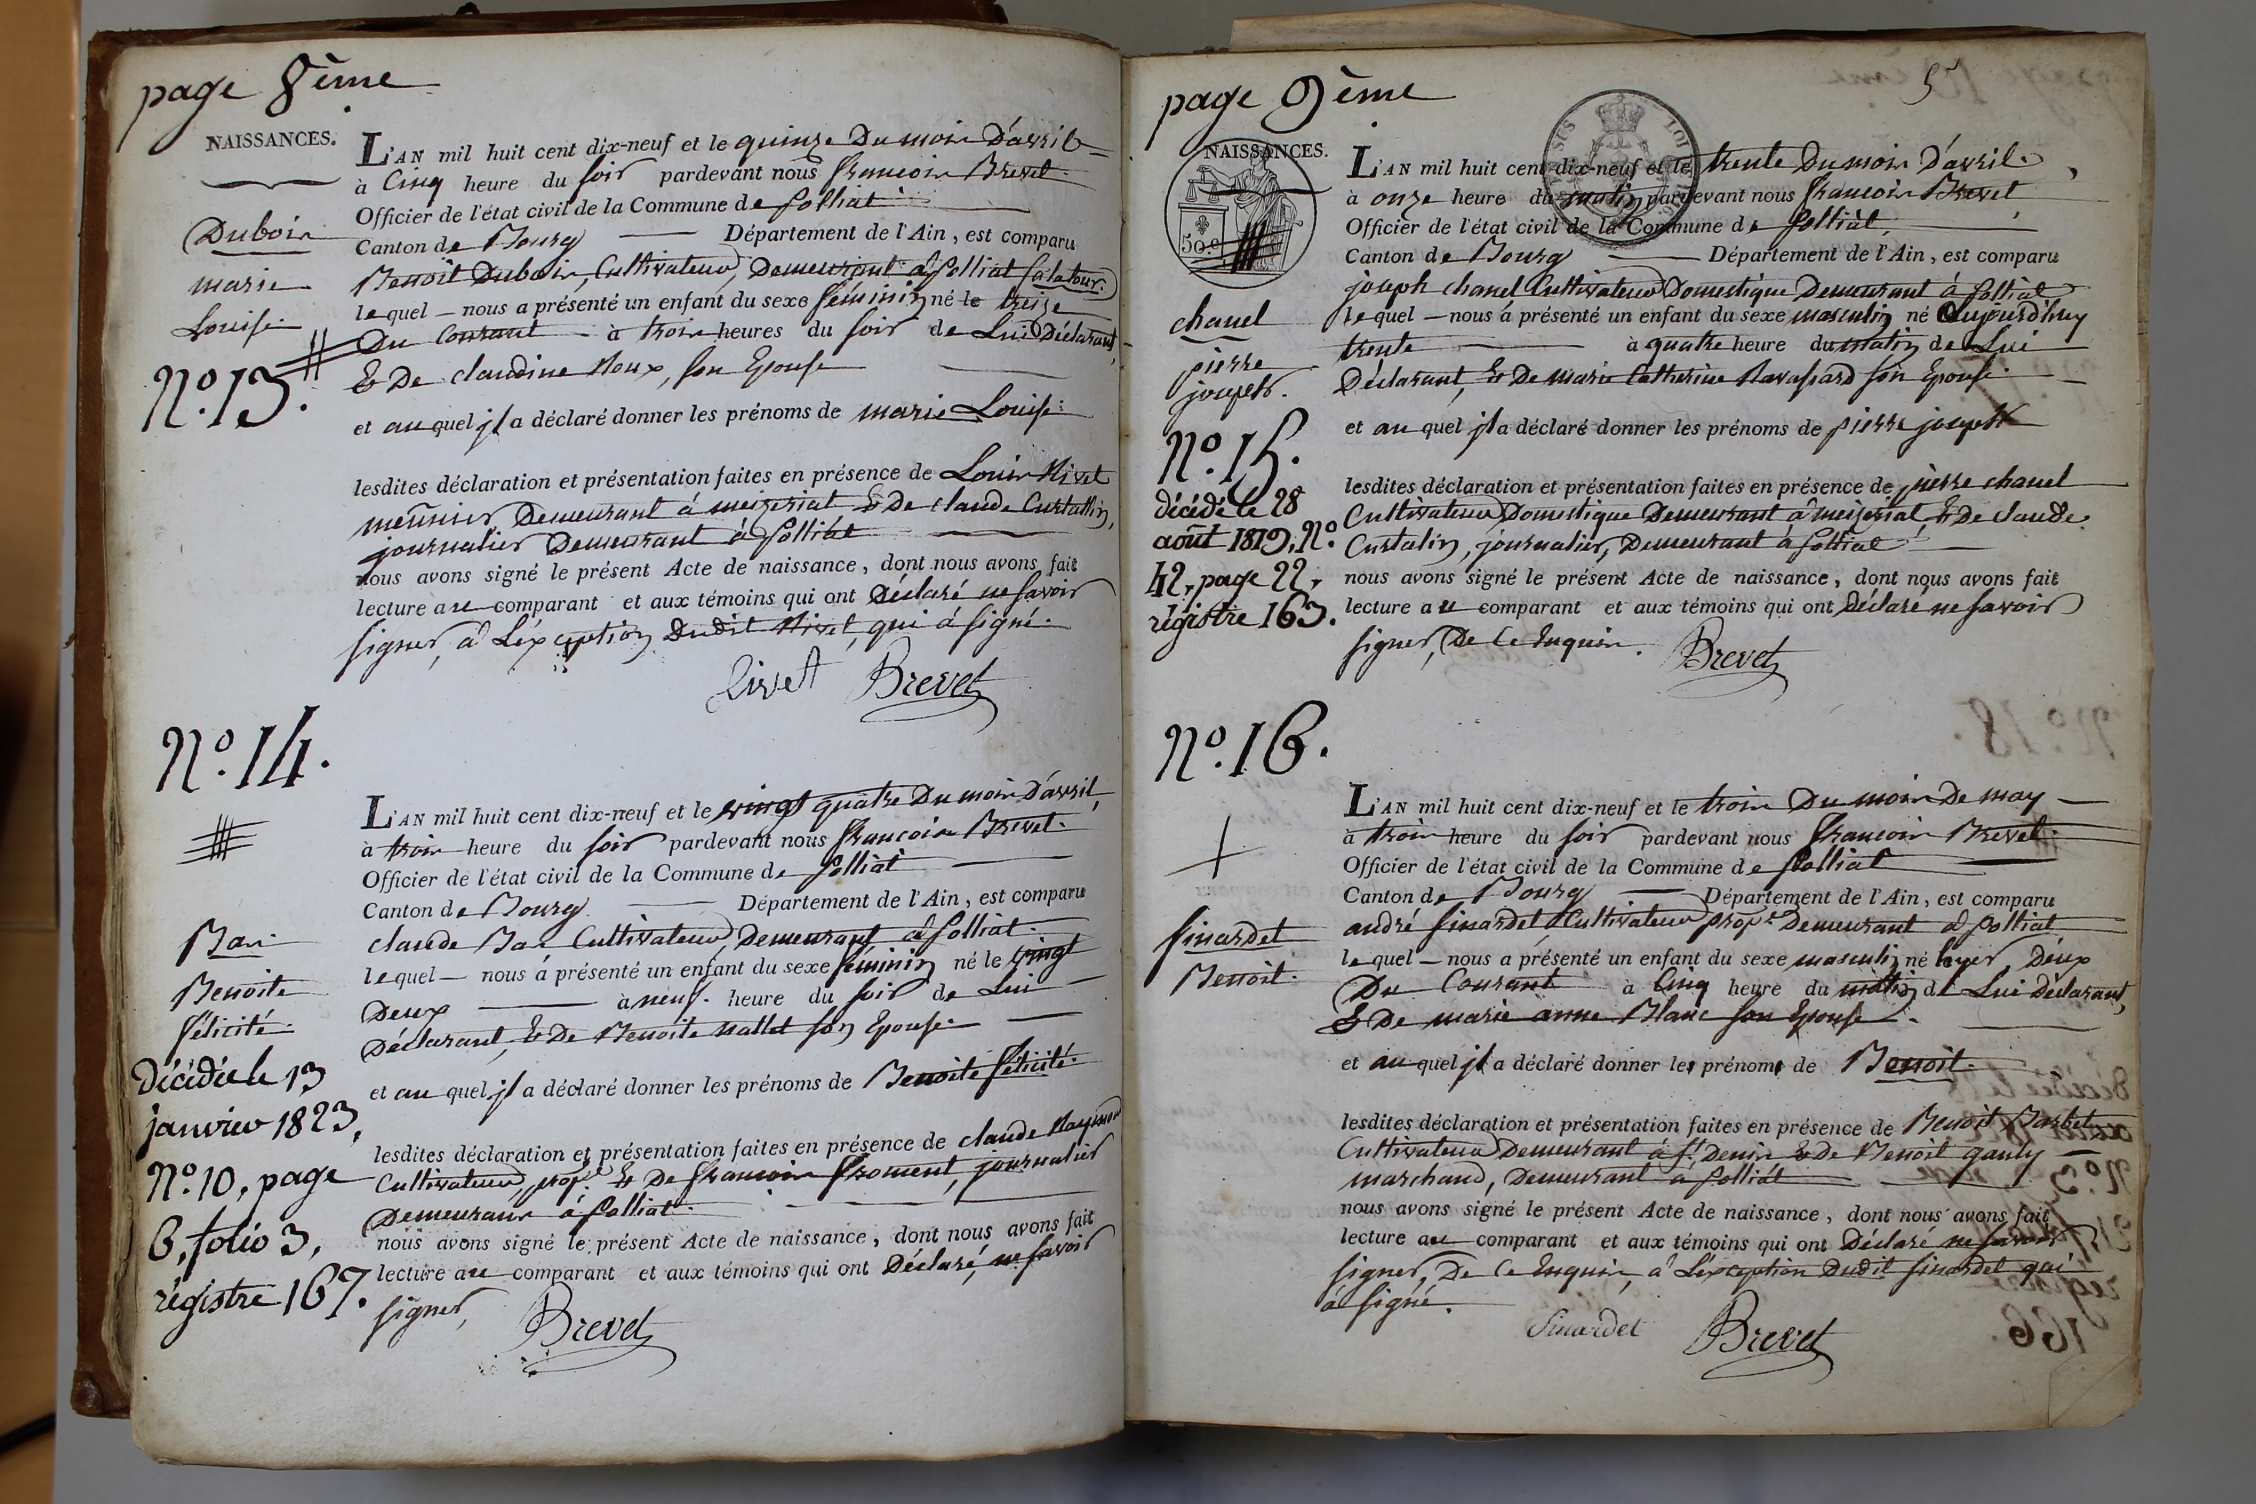 page 8ème
NAISSANCES.
L'AN mil huit cent dix-neuf et le quinze Du mois D'avril
à Cinq heure du soir pardevant nous francois Brevet
Officier de l'état civil de la Commune de polliat
Canton de Bourg Département de l'Ain, est comparu
Benoit Dubois, Cultivateur, Demeurant à polliat
lequel nous a présenté un enfant du sexe féminin né le treize
Du Courant à trois heures du soir de Lui Déclarant,
& De claudine Roux, son Epouse
et au quel il a déclaré donner les prénoms de marie Louise
lesdites déclaration et présentation faites en présence de Louis Rivet
meunier Demeurant à meizeriat & De claude Curtallin,
journalier Demeurant à polliat
nous avons signé le présent Acte de naissance, dont nous avons fait
lecture au comparant et aux témoins qui ont Déclaré ne savoir
signer, à L'exception Dudit Rivet, qui à signé.
Rivet Brevet
Dubois
marie
Louise
N.o 13.
N.o 14.
L'AN mil huit cent dix-neuf et le vingt quatre Du mois D'avril,
à trois heure du soir pardevant nous francois Brevet
Officier de l'état civil de la Commune de polliat
Canton de Bourg Département de l'Ain, est comparu
claude Bas Cultivateur, Demeurant à polliat
lequel nous a présenté un enfant du sexe féminin né le vingt
Deux à neuf heure du soir de Lui
Déclarant, & De Benoite mallet son Epouse
et au quel il a déclaré donner les prénoms de Benoite félicité
lesdites déclaration et présentation faites en présence de claude Raymond
Cultivateur, prop.re & De francois froment, journalier
Demeurans à polliat
nous avons signé le présent Acte de naissance, dont nous avons fait
lecture au comparant et aux témoins qui ont Déclaré, ne savoir
signer,
Brevet
Bas
Benoite
félicité
Décédée le 13
janvier 1823,
N.o 10, page
6, folio 3,
régistre 167.
page 9ème
5
NAISSANCES.
50 c
L'AN mil huit cent dix-neuf et le trente Du mois D'avril
à onze heure du matin pardevant nous francois Brevet
Officier de l'état civil de la Commune de polliat,
Canton de Bourg Département de l'Ain, est comparu
joseph chanel Cultivateur Domestique Demeurant à polliat
lequel nous a présenté un enfant du sexe masculin né aujourd'huy
trente à quatre heure du matin de Lui
Déclarant, & De marie Catherine Ravassard son Epouse
et au quel il a déclaré donner les prénoms de pierre joseph
lesdites déclaration et présentation faites en présence de pierre chanel
Cultivateur Domestique Demeurant à meizeriat & De claude
Curtalin, journalier, Demeurant à polliat
nous avons signé le présent Acte de naissance, dont nous avons fait
lecture au comparant et aux témoins qui ont Déclaré ne savoir
signer, De Ce Enquis. Brevet
chanel
pierre
joseph.
N.o 15.
décédé le 28
août 1819, N.o
42, page 22,
régistre 163.
N.o 16.
L'AN mil huit cent dix-neuf et le trois Du mois De may
à trois heure du soir pardevant nous francois Brevet
Officier de l'état civil de la Commune de polliat
Canton de Bourg Département de l'Ain, est comparu
andré finardet Cultivateur prop.re Demeurant à polliat
lequel nous a présenté un enfant du sexe masculin né hyer Deux
Du Courant à Cinq heure du matin de Lui Déclarant,
& De marie anne Blanc son Epouse
et au quel il a déclaré donner les prénoms de Benoit
lesdites déclaration et présentation faites en présence de Benoit Barbet
Cultivateur Demeurant à St. Denis & De Benoit gauly
marchand, Demeurant à polliat
nous avons signé le présent Acte de naissance, dont nous avons fait
lecture au comparant et aux témoins qui ont Déclaré ne savoir
signer, De Ce Enquis, à L'exception Dudit finardet qui
à signé.
finardet Brevet
finardet
Benoit